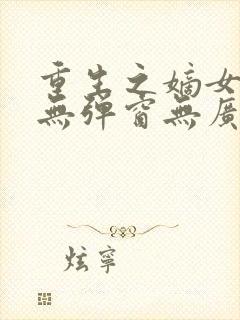 重生之嫡女
無彈窗無廣
炫寧